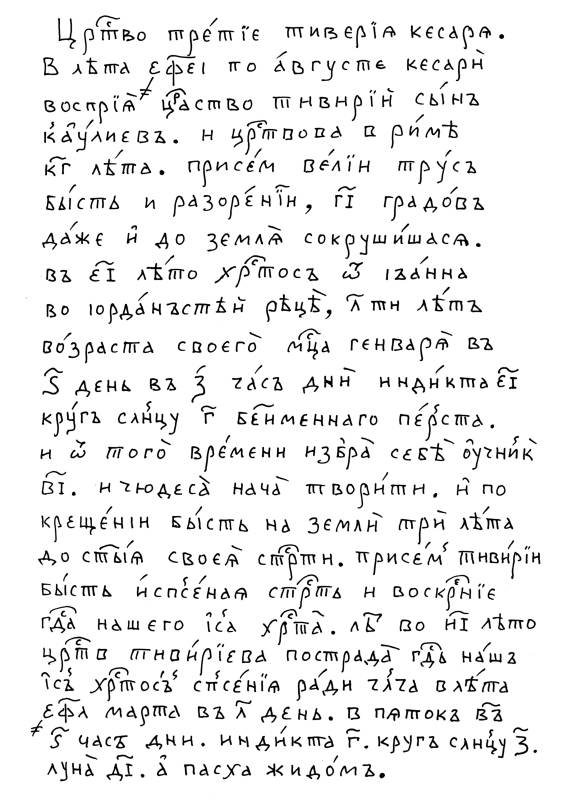 Црⷭ҇тво тре́тїе тиверїѧ кесарѧ.
В лѣта ҂є҃ф҃е҃і по а́вгустѣ кесарѝ
воспрїѧ̀ црⷭ҇аство тивирїѝ сы́нъ
ка҆у́лиевъ. и црⷭ҇твова в ри́мѣ
к҃г лѣ́та. присе́м ве́лїи тру́съ
бы́сть и разоре́нїи, г҃і градо́въ
да́же и҆ до землѧ̀ сокруши́шасѧ.
въ є҃і лѣ́то хрⷭ҇тосъ ѿ іѡа́нна
во іѻрда́нъстѣй рѣцѣ̀, л҃ ти лѣ́тъ
во́зраста своегѡ̀ мцⷭ҇а генварѧ̀ въ
ѕ҃ день въ з҃ ча́съ днѝ инди́кта є҃і
кру́гъ слнⷰ҇у г҃ бе́именнаго пе́рⷭ҇ста.
и ѿ тогѡ̀ вре́мени избра̀ себѣ̀ ѹ҆чнⷦ҇и҆к̀
в҃і. и чюдеса̀ нача̀ твори́ти. и҆ по
креще́нїи бы́сть на землѝ трѝ лѣ́та
до ст҃ы́ѧ своеѧ̀ стрⷭ҇ти. присе́мъ тиви́рїи
бы́сть и҆спⷭ҇е́наѧ стрⷭ҇ть и воскрⷭ҇нїе
гдⷭ҇а нашего і҆с҃а хрⷭ҇та̀. лѣ̀ во и҃і лѣ́то
црⷭ҇тв тиви́рїева пострада̀ гдⷭ҇ь на́шъ
і҆с҃ъ хрⷭ҇то́съ спⷭ҇се́нїѧ ра́ди ч҃лча в лѣ́та
҂є҃ф҃л҃а марта въ л҃ день. в пѧтокъ въ
ѕ҃ часъ дни. инди́кта г҃. кругъ слнⷰ҇у з҃.
луна̀ д҃і. а҆ пасха жидо́мъ.